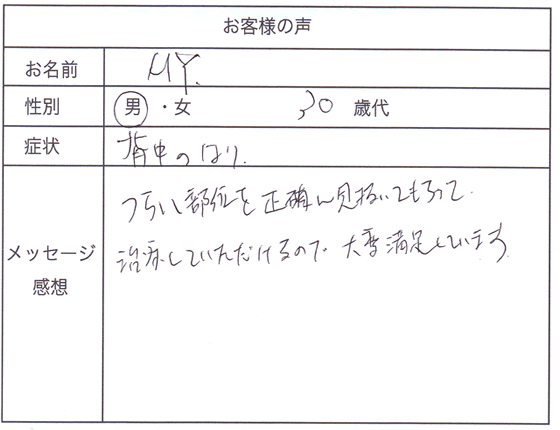 お客様の声
お名前 M.Y.
性別 男・女 30 歳代
症状 背中のはり.
メッセージ
感想
つらい部位を正確に見抜いてもらって
治療していただけるので、大変満足しています